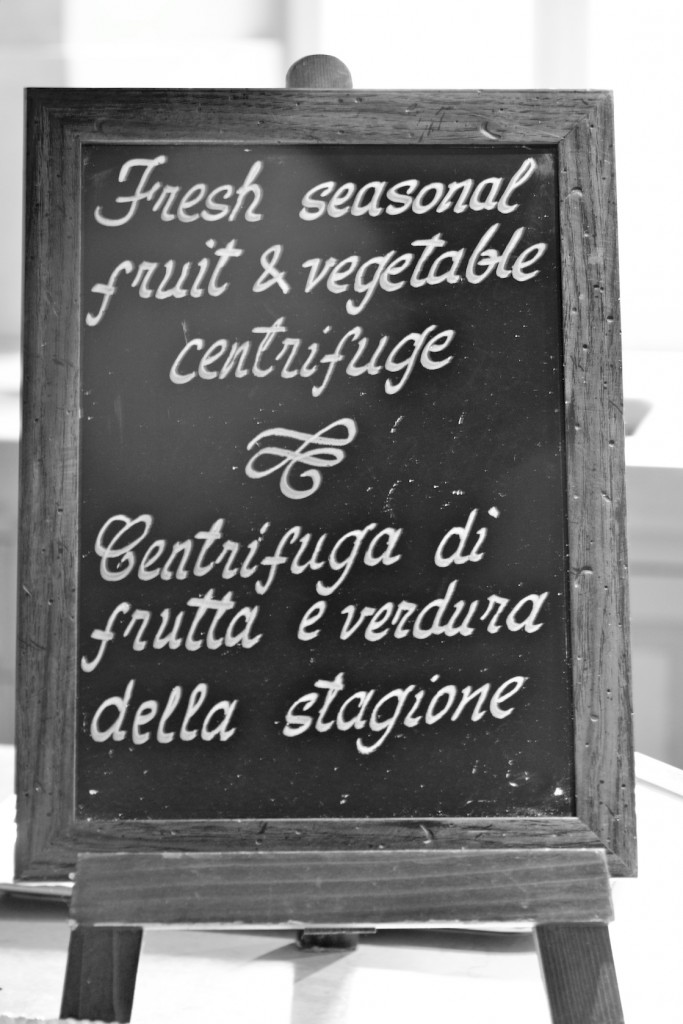 Fresh seasonal
fruit & vegetable
centrifuge
Centrifuga di
frutta e verdura
della stagione